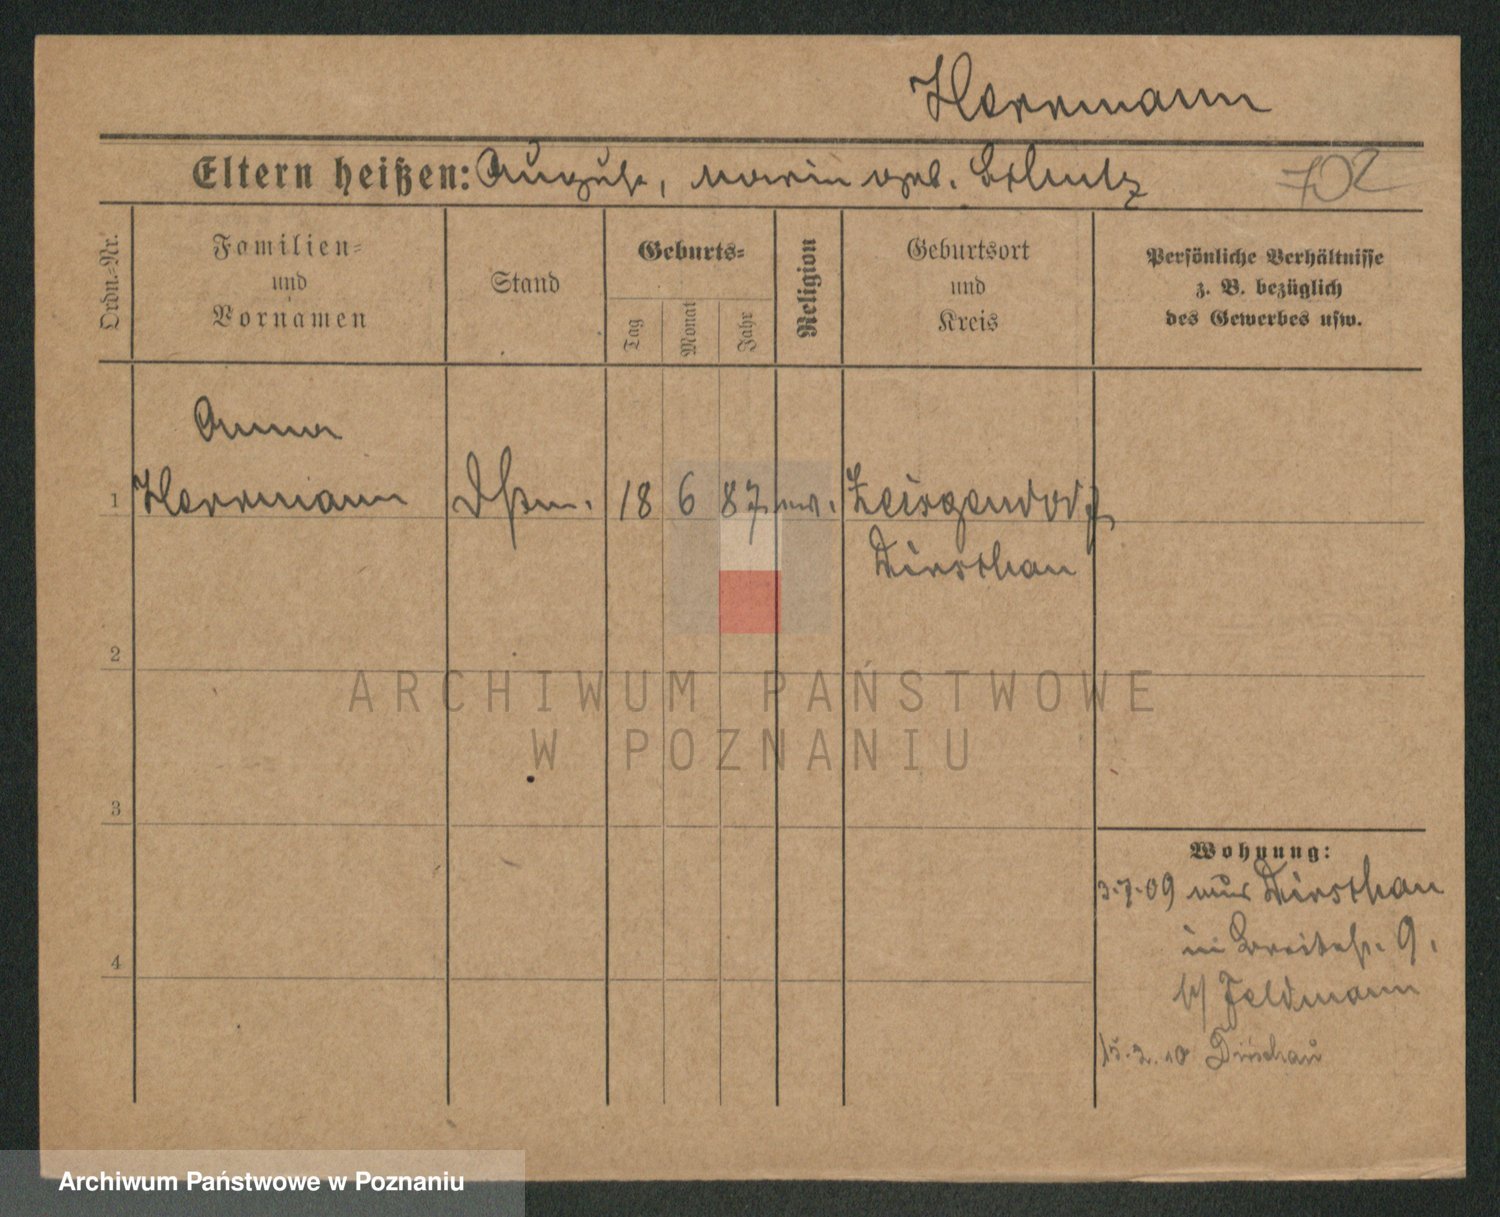 Herrmann
Eltern heißen: August, Marie geb. Schulz
702
Ordn.=Nr.
Familien=
und
Vornamen
Stand
Geburts=
Tag
Monat
Jahr
Religion
Geburtsort
und
Kreis
Persönliche Verhältnisse
z. B. bezüglich
des Gewerbes usw.
Anna
1 Herrmann 18 6 87 Zeisgendorf
Dirschau
2
ARCHIWUM PAŃSTWOWE
W POZNANIU
3
Wohnung:
3.7.09 aus Dirschau
in Breitestr. 9.
b/ Feldmann
4
15.2.10 Dirschau
Archiwum Państwowe w Poznaniu